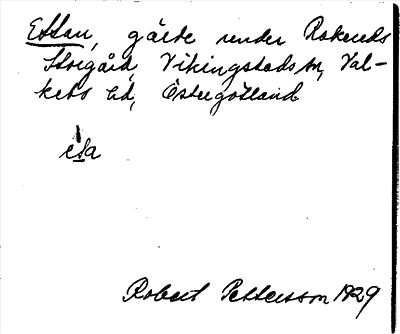 Ettan, gärde under Rakereds
Storgård, Vikingstads sn, Val-
kebo hd, Östergötland
eta
Robert Pettersson 1929